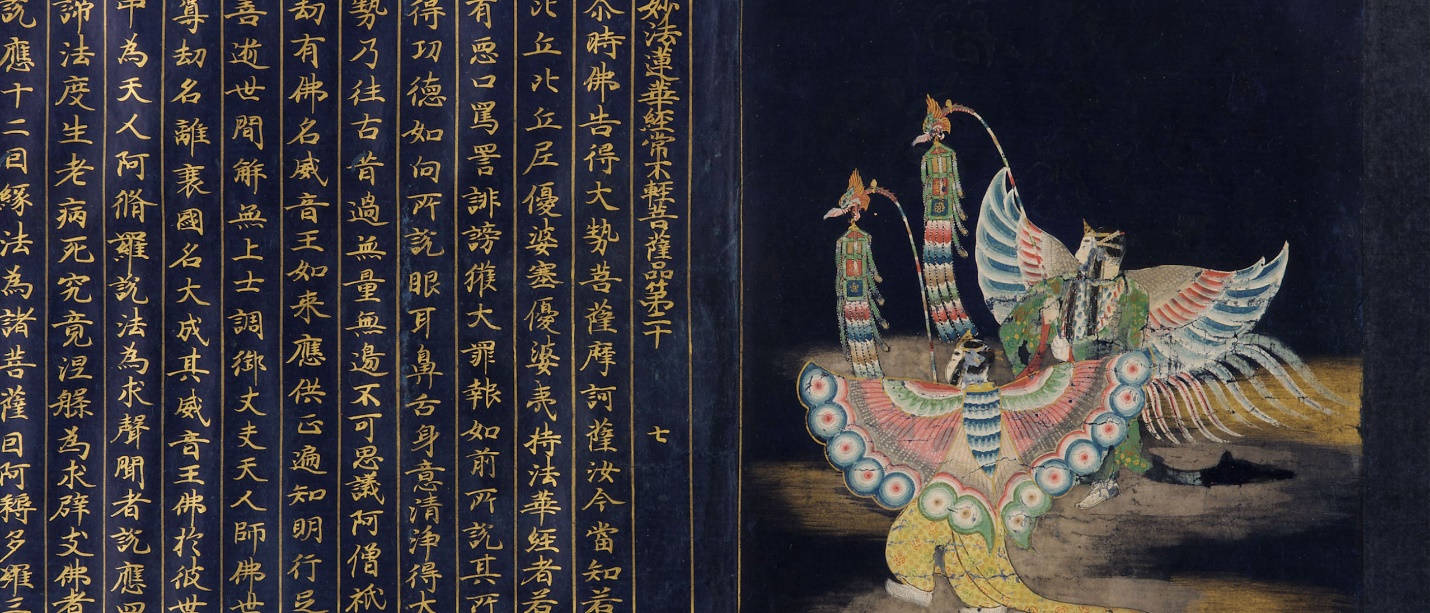 妙法蓮華經常不輕菩薩品第二十　七
尒時佛告得大勢菩薩摩訶薩汝今當知若
比丘比丘尼優婆塞優婆夷持法華經者若
有惡口罵詈誹謗獲大罪報如前所說其所
得功德如向所說眼耳鼻舌身意清淨得大
勢乃往古昔過無量無邊不可思議阿僧祇
劫有佛名威音王如來應供正遍知明行足
善逝世間解無上士調御丈夫天人師佛世
尊劫名離衰國名大成其威音王佛於彼世
中為天人阿脩羅說法為求聲聞者說應四
諦法度生老病死究竟涅槃為求辟支佛者
說應十二因緣法為諸菩薩因阿耨多羅三